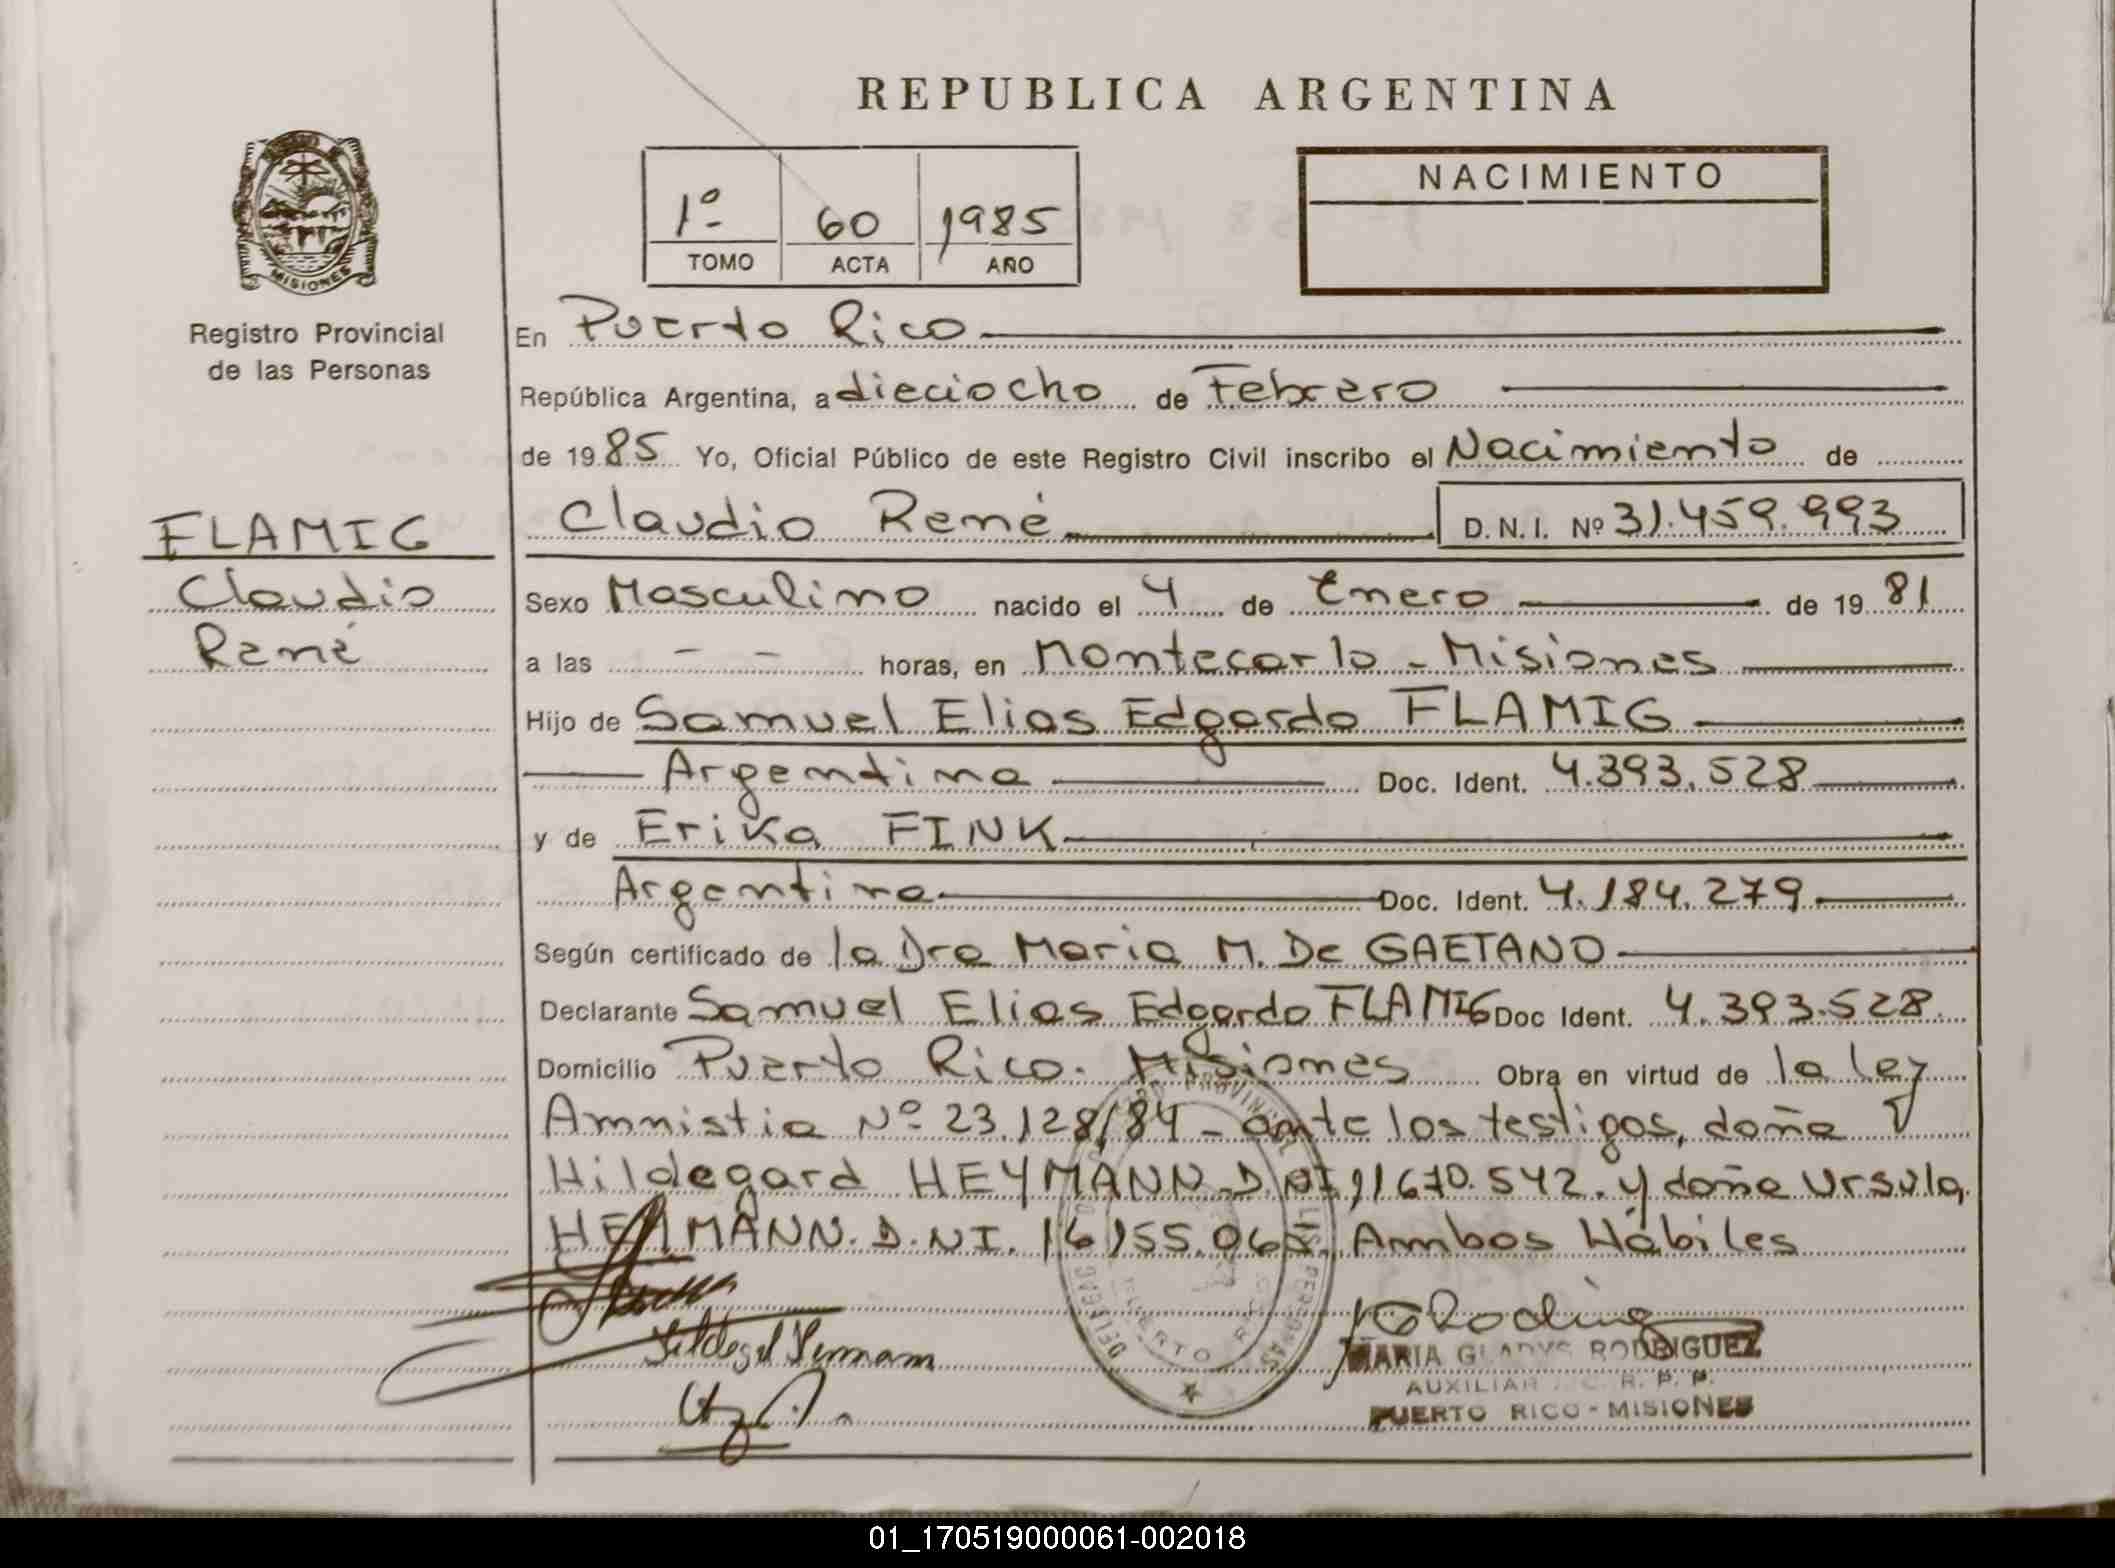 REPUBLICA ARGENTINA
MISIONES
Registro Provincial
de las Personas
1º 60 1985
TOMO ACTA AÑO
NACIMIENTO
En Puerto Rico
República Argentina, a dieciocho de Febrero
de 1985 Yo, Oficial Público de este Registro Civil inscribo el Nacimiento de
Claudio René D.N.I. Nº 31.459.993
FLAMIG
Claudio
René
Sexo Masculino nacido el 4 de Enero de 1981
a las - - horas, en Montecarlo - Misiones
Hijo de Samuel Elias Edgardo FLAMIG
Argentina Doc. Ident. 4.393.528
y de Erika FINK
Argentina Doc. Ident. 4.184.279
Según certificado de la Dra Maria M. De GAETANO
Declarante Samuel Elias Edgardo FLAMIG Doc Ident. 4.393.528
Domicilio Puerto Rico. Misiones Obra en virtud de la ley
Amnistia Nº 23.128/84 - ante los testigos, doña
Hildegard HEYMANN. D.NI. 11670.542. y doña Ursula
HEYMANN. D.NI. 16155.065. Ambos Hábiles
MARIA GLADYS RODRIGUEZ
AUXILIAR R. P. P.
PUERTO RICO - MISIONES
01_170519000061-002018